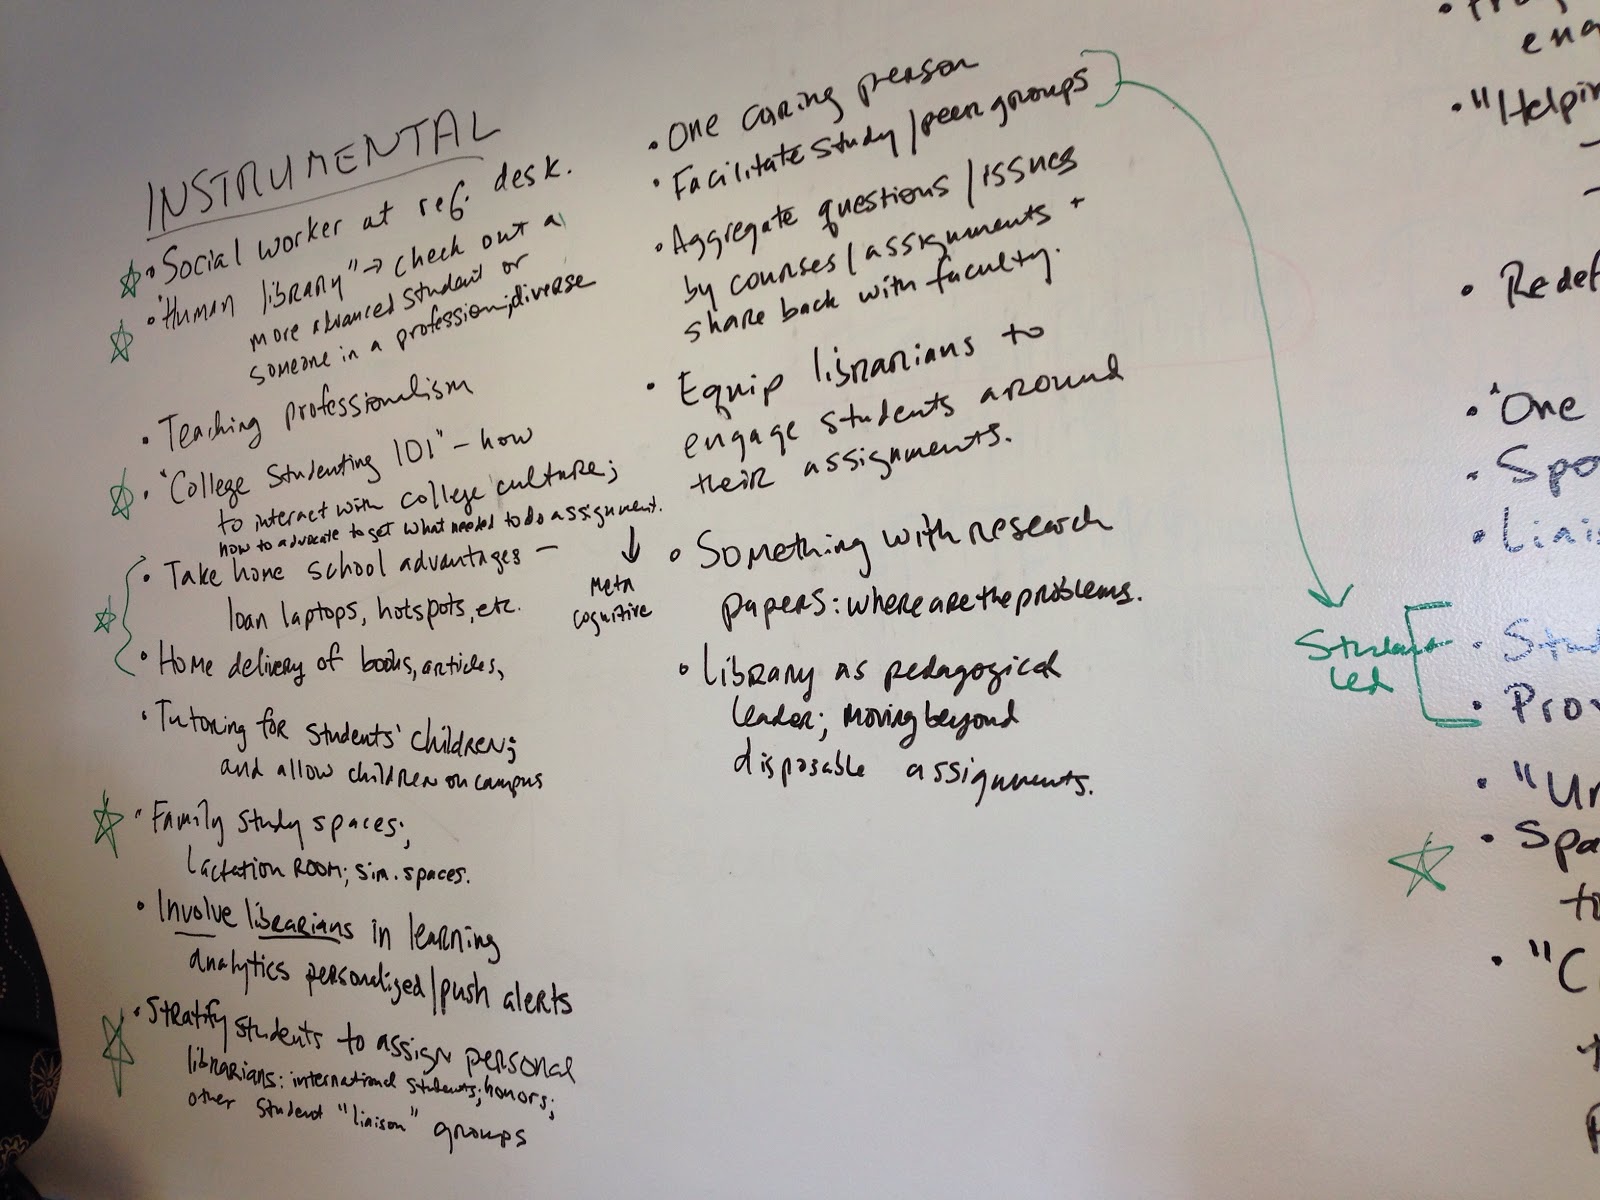 INSTRUMENTAL
• Social worker at ref. desk.
• "Human library" → check out a
more advanced student or
someone in a profession; diverse
• Teaching professionalism
• "College Studenting 101" - how
to interact with college culture;
how to advocate to get what needed to do assignment.
↓
Meta
cognitive
• Take home school advantages -
loan laptops, hotspots, etc.
• Home delivery of books, articles,
• Tutoring for students' children;
and allow children on campus
• Family study spaces;
lactation room; sim. spaces.
• Involve librarians in learning
analytics personalized/push alerts
• Stratify students to assign personal
librarians: international students; honors;
other student "liaison" groups
• One caring person
• Facilitate study/peer groups
• Aggregate questions/issues
by courses/assignments +
share back with faculty.
• Equip librarians to
engage students around
their assignments.
• Something with research
papers: where are the problems.
• Library as pedagogical
leader; moving beyond
disposable assignments.
Student
led
• "Helpin
• Redef
• "One
• Spo
• Liais
• Stud
• Prov
• "Un
• Spa
to
• "C